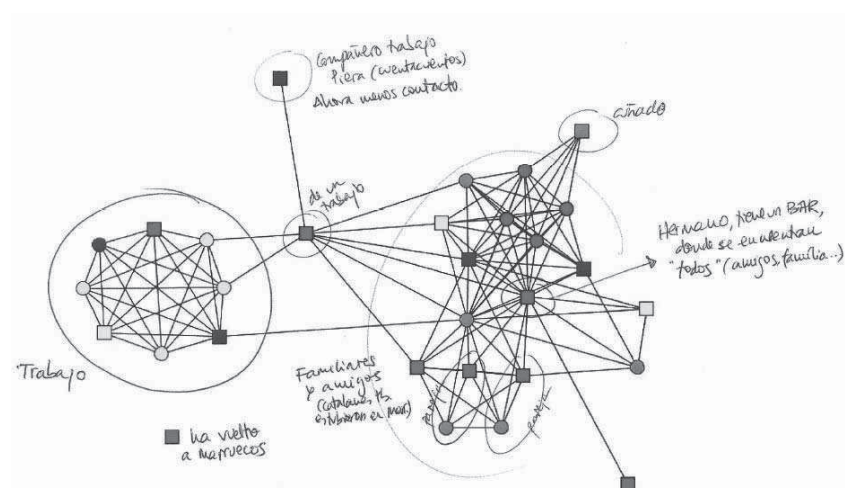 Compañero trabajo
Piera (cuentacuentos)
Ahora menos contacto.
cuñado
de un
trabajo
Hermano, tiene un BAR,
donde se encuentran
"todos" (amigos, familia...)
Trabajo
Familiares
y amigos
(catalanes tb
estubieron en
pareja
pareja
ha vuelto
a marruecos